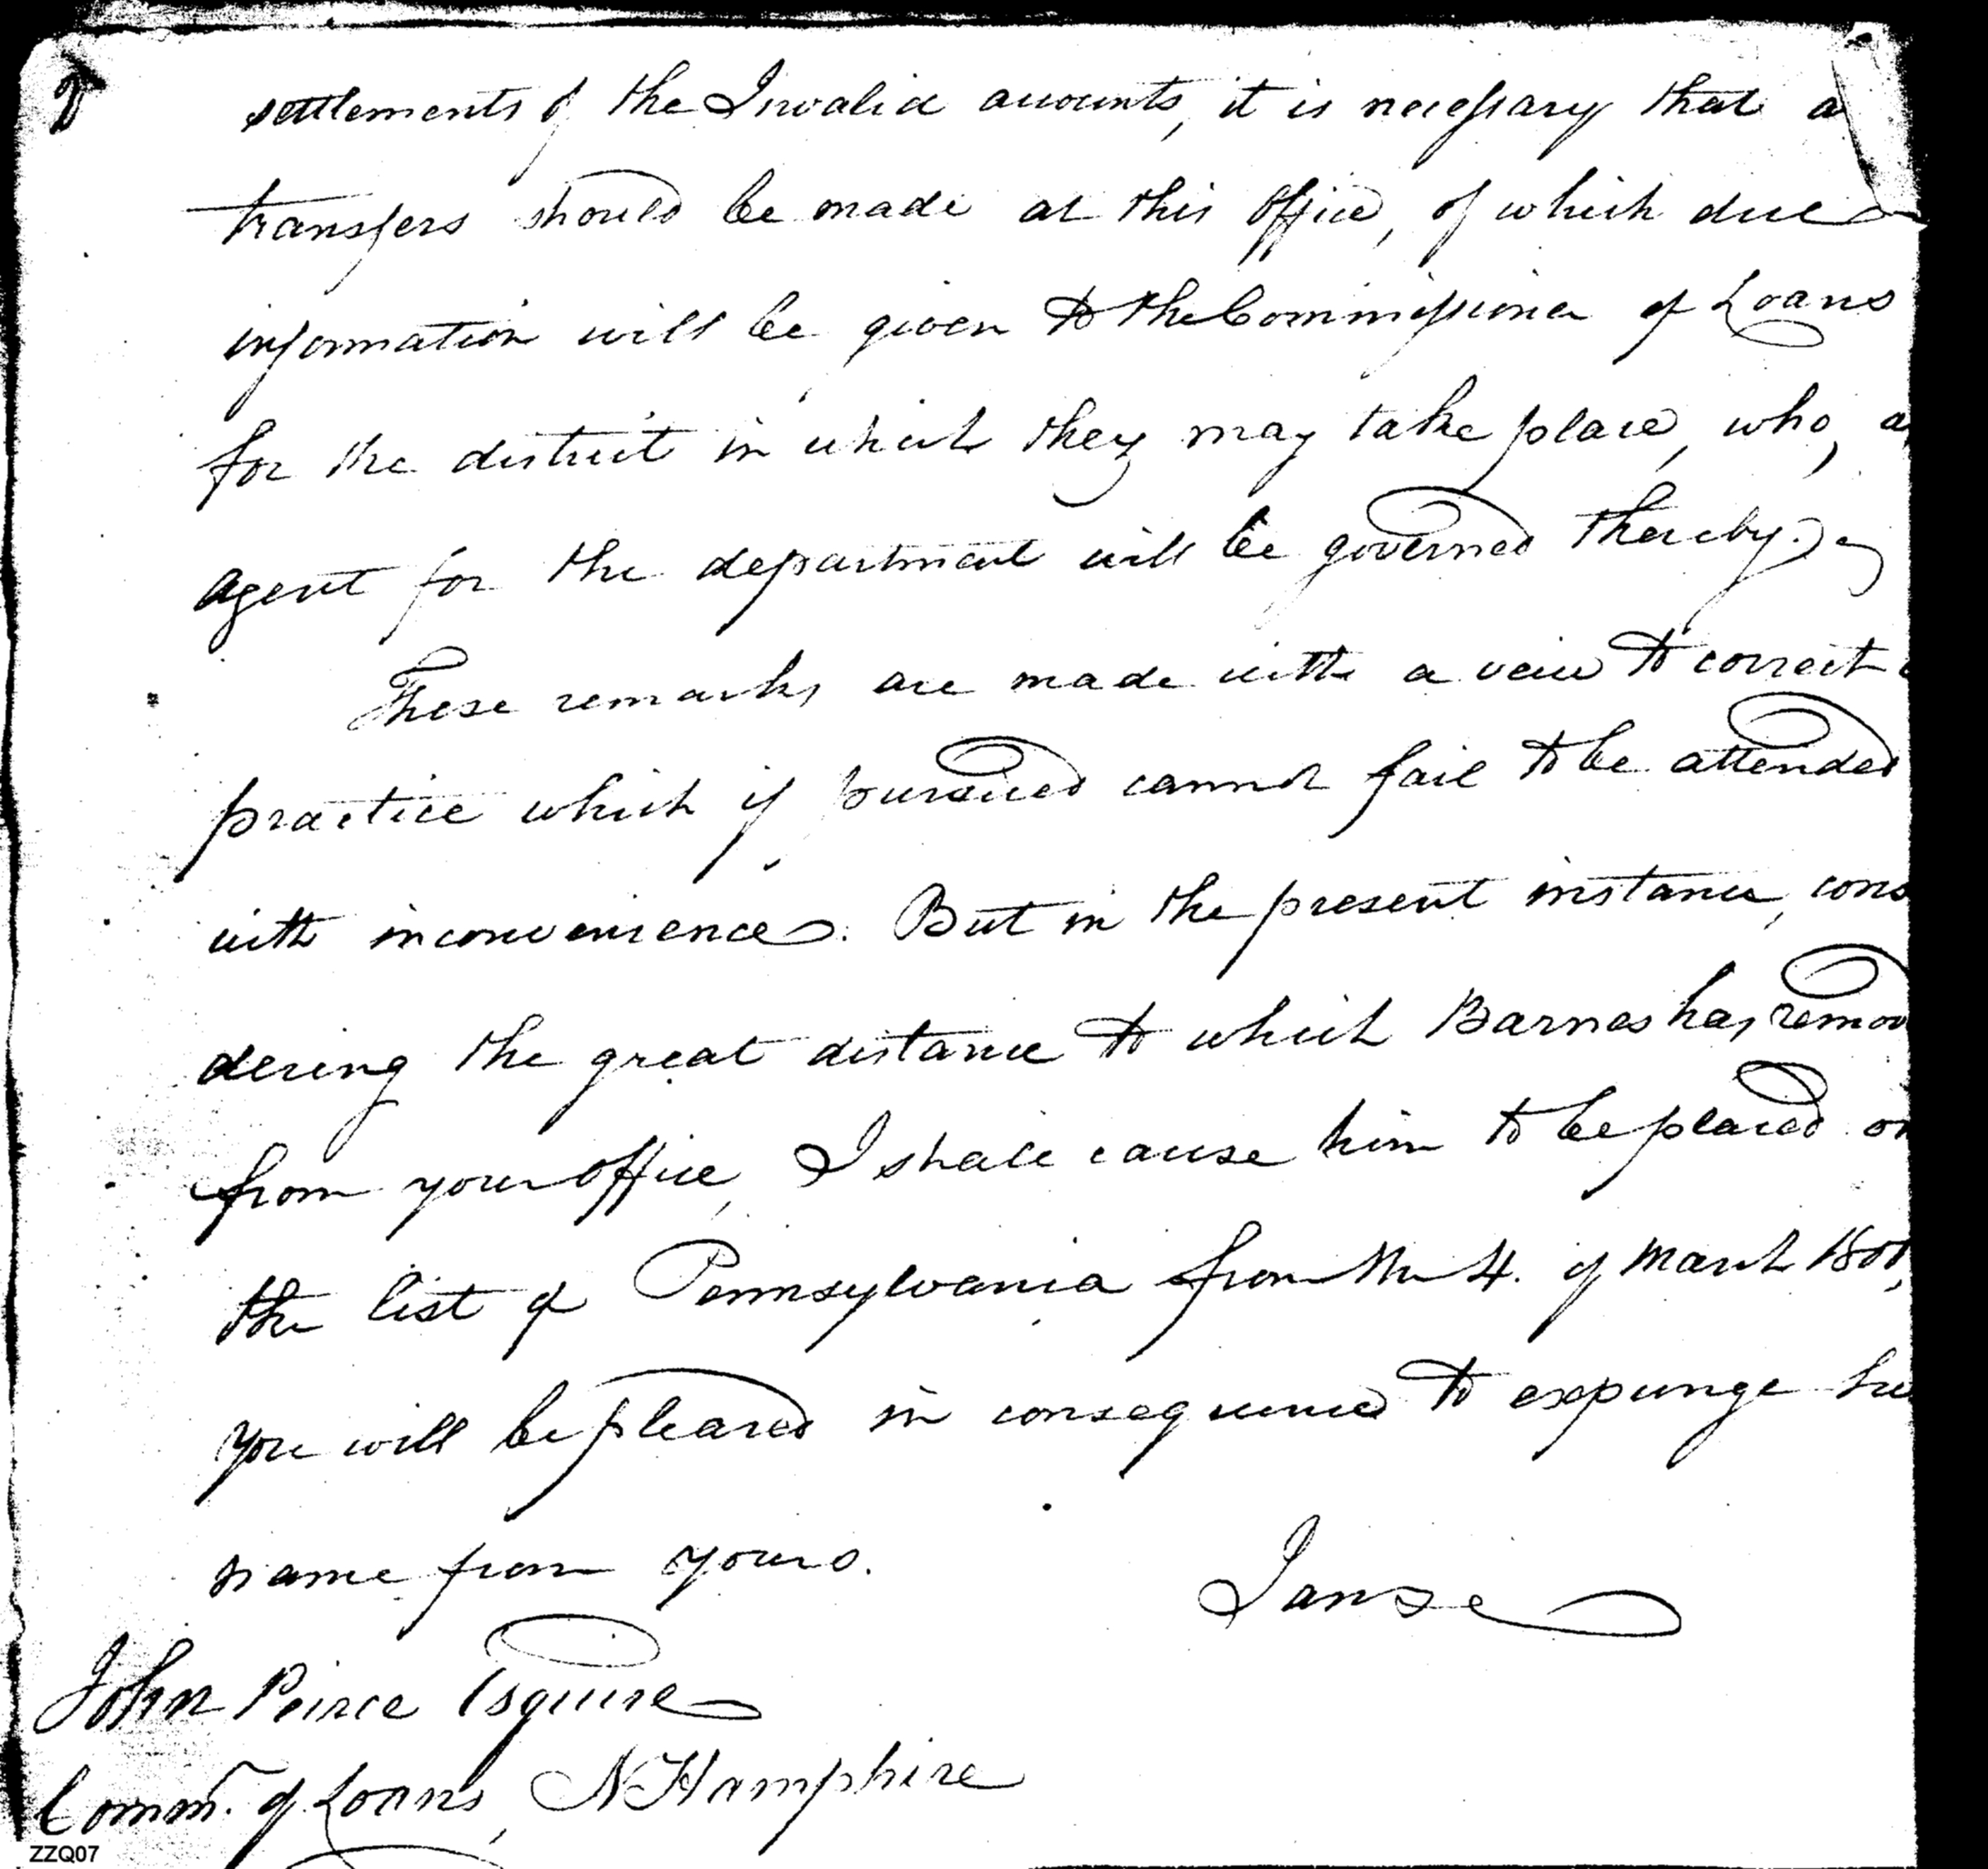 settlements of the Invalid accounts, it is necessary that a
transfers should be made at this Office, of which due
information will be given to the Commissioner of Loans
for the district in which they may take place, who, a
agent for the department will be governed thereby.
These remarks are made with a veiw to correct
practice which if pursued cannot fail to be attended
with inconvenience. But in the present instance, cons
dering the great distance to which Barnes has remov
from your office, I shall cause him to be placed on
the list of Pennsylvania from the 4. of March 1801,
you will be pleased in consequence to expunge his
name from yours.
I am &c
John Peirce Esquire
Commr. of Loans, N Hampshire
ZZQ07